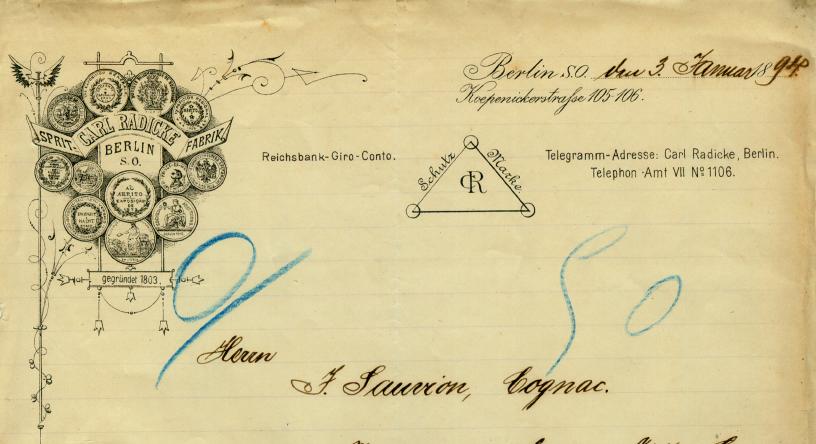 Berlin S.O. den 3. Januar 1894.
Koepenickerstraße 105-106.
SPRIT- CARL RADICKE FABRIK
BERLIN
S.O.
Reichsbank-Giro-Conto.
Schutz Marke.
CR
Telegramm-Adresse: Carl Radicke, Berlin.
Telephon-Amt VII No 1106.
AL
MERITO
EXPOSICION
DE
gegründet 1803.
9/ 50
Herrn
J. Sauvion, Cognac.